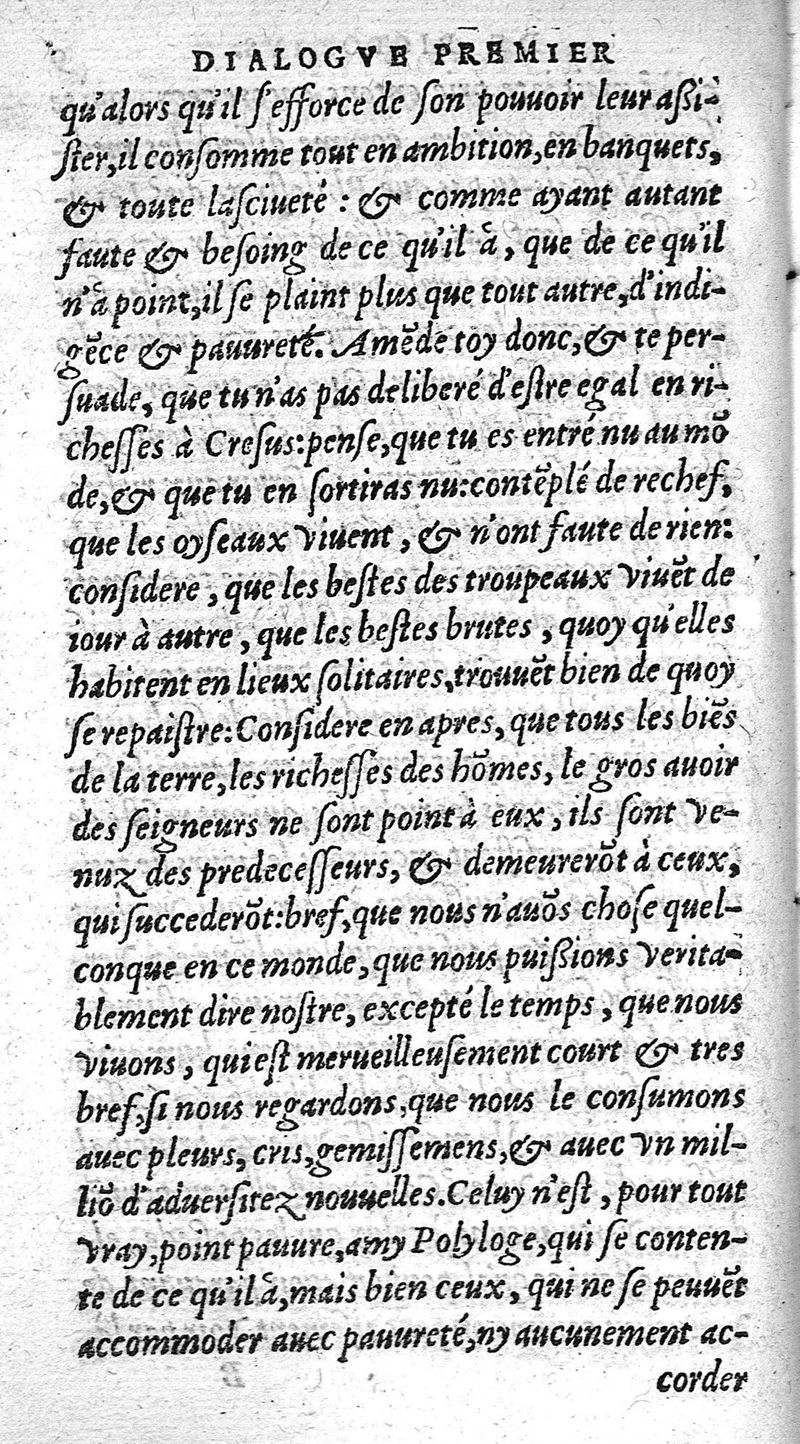 DIALOGVE PREMIER
qu'alors qu'il s'efforce de son pouuoir leur aßi-
ster, il consomme tout en ambition, en banquets,
& toute lasciueté : & comme ayant autant
faute & besoing de ce qu'il à, que de ce qu'il
n'à point, il se plaint plus que tout autre, d'indi-
gẽce & pauureté. Amẽde toy donc, & te per-
suade, que tu n'as pas deliberé d'estre egal en ri-
chesses à Cresus: pense, que tu es entré nu au mõ
de, & que tu en sortiras nu: contẽplé de rechef,
que les oyseaux viuent, & n'ont faute de rien:
considere, que les bestes des troupeaux viuẽt de
iour à autre, que les bestes brutes, quoy qu'elles
habitent en lieux solitaires, trouuẽt bien de quoy
se repaistre: Considere en apres, que tous les biẽs
de la terre, les richesses des hõmes, le gros auoir
des seigneurs ne sont point à eux, ils sont ve-
nuz des predecesseurs, & demeurerõt à ceux,
qui succederõt: bref, que nous n'auõs chose quel-
conque en ce monde, que nous puißions verita-
blement dire nostre, excepté le temps, que nous
viuons, qui est merueilleusement court & tres
bref, si nous regardons, que nous le consumons
auec pleurs, cris, gemissemens, & auec vn mil-
liõ d'aduersitez nouuelles. Celuy n'est, pour tout
vray, point pauure, amy Polyloge, qui se conten-
te de ce qu'il à, mais bien ceux, qui ne se peuuẽt
accommoder auec pauureté, ny aucunement ac-
corder